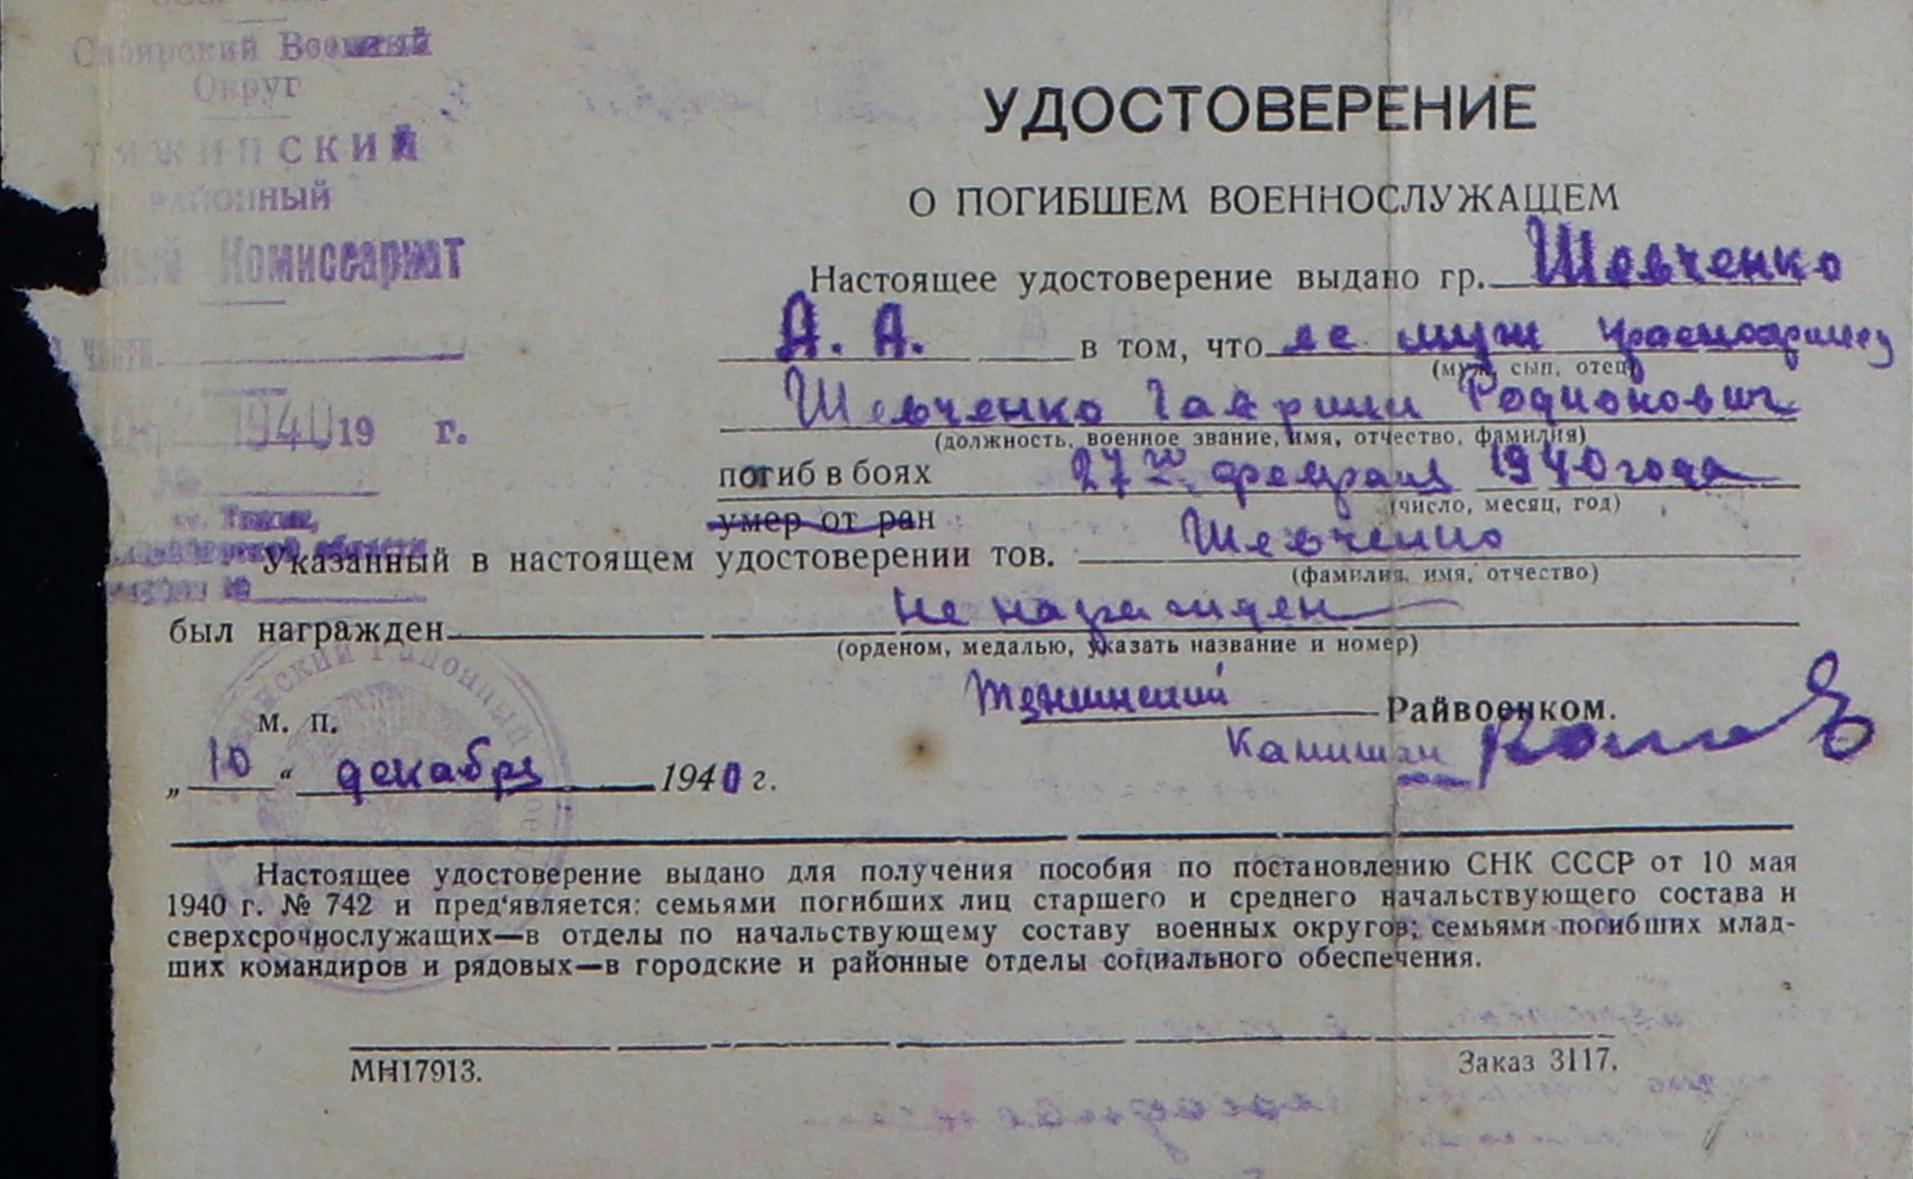 Сибирский Военный
Округ
ТЯЖИНСКИЙ
РАЙОННЫЙ
Комиссариат
части
1940 19 г.
№
УДОСТОВЕРЕНИЕ
О ПОГИБШЕМ ВОЕННОСЛУЖАЩЕМ
Настоящее удостоверение выдано гр. Шевченко
А. А. в том, что ее муж красноармеец
(муж, сын, отец)
Шевченко Гавриил Родионович
(должность, военное звание, имя, отчество, фамилия)
погиб в боях 27го февраля 1940 года
(число, месяц, год)
умер от ран
Указанный в настоящем удостоверении тов. Шевченко
(фамилия, имя, отчество)
был награжден не награжден
(орденом, медалью, указать название и номер)
Тяжинский Райвоенком.
м. п. Капитан
„10“ декабря 1940 г.
Настоящее удостоверение выдано для получения пособия по постановлению СНК СССР от 10 мая
1940 г. № 742 и пред‘является: семьями погибших лиц старшего и среднего начальствующего состава и
сверхсрочнослужащих—в отделы по начальствующему составу военных округов; семьями погибших млад-
ших командиров и рядовых—в городские и районные отделы социального обеспечения.
МН17913. Заказ 3117.